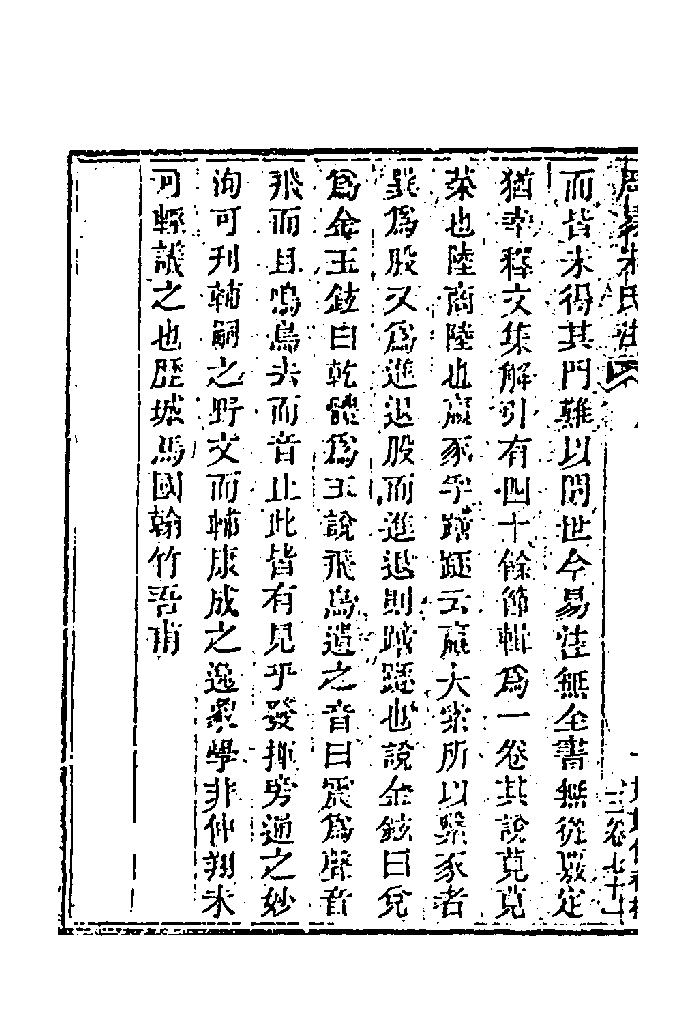 而皆未得其門難以問世今易注無全書無從覈定
猶幸釋文集解引有四十餘節輯爲一卷其說莧莧
菜也陸商陸也羸豕孚蹢䠱云羸大索所以繫豕者
巽爲股又爲進退股而進退則蹢䠱也說金鉉曰兌
爲金玉鉉曰乾體爲玉說飛鳥遺之音曰震爲聲音
飛而且鳴鳥去而音止此皆有見乎發揮旁通之妙
洵可刋輔嗣之野文而輔康成之逸象學非仲翔未
可輕議之也歷城馬國翰竹吾甫